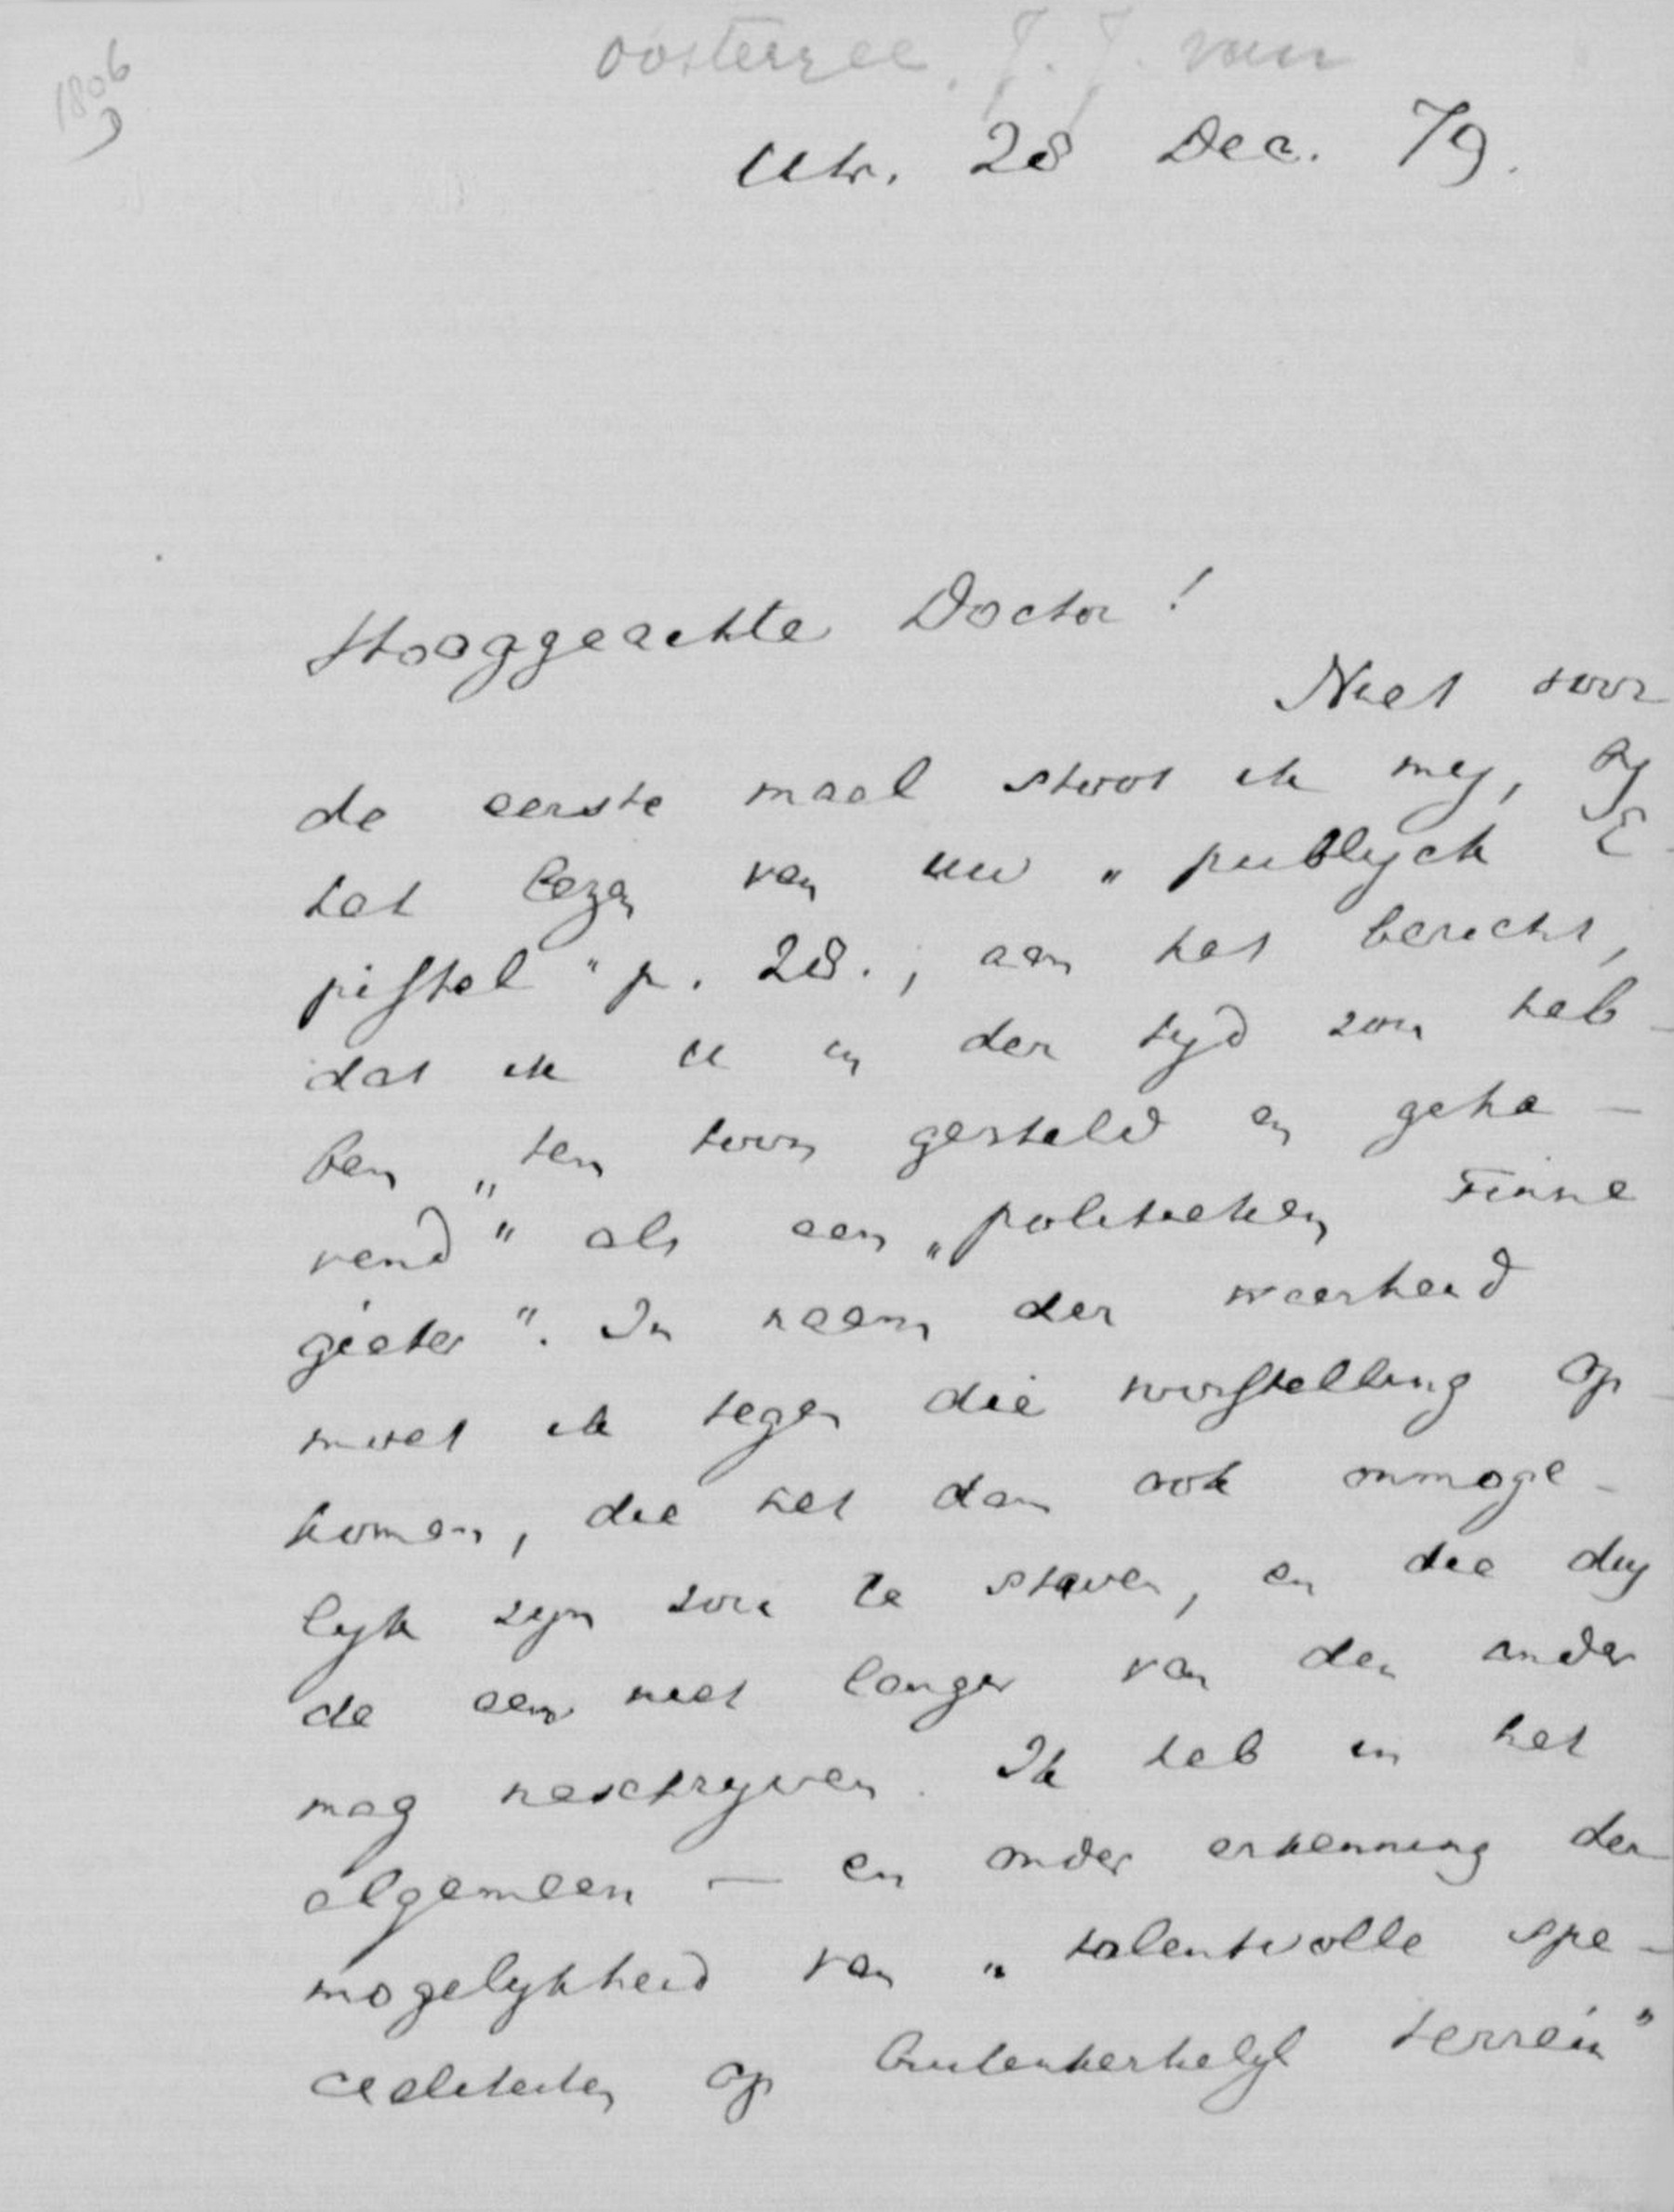 1806
Oosterzee, J.J. van
Utr. 28 Dec. 79.
Hooggeachte Doctor!
Niet voor
de eerste maal stoot ik mij, bij
het lezen van uw „publijck E-
pistel" p. 28., aan het bericht,
dat ik U in der tijd zou heb-
ben „ten toon gesteld en geho-
vend" als een „politieken Tinne
gieter". In naam der waarheid
moet ik tegen die voorstelling op-
komen, die het dan ook onmoge-
lijk zijn zou te staven, en die dus
de een niet langer van den ander
mag naschrijven. Ik heb in het
algemeen — en onder erkenning der
mogelijkheid van „talentvolle spe-
cialiteiten op buitenkerkelijk terrein"